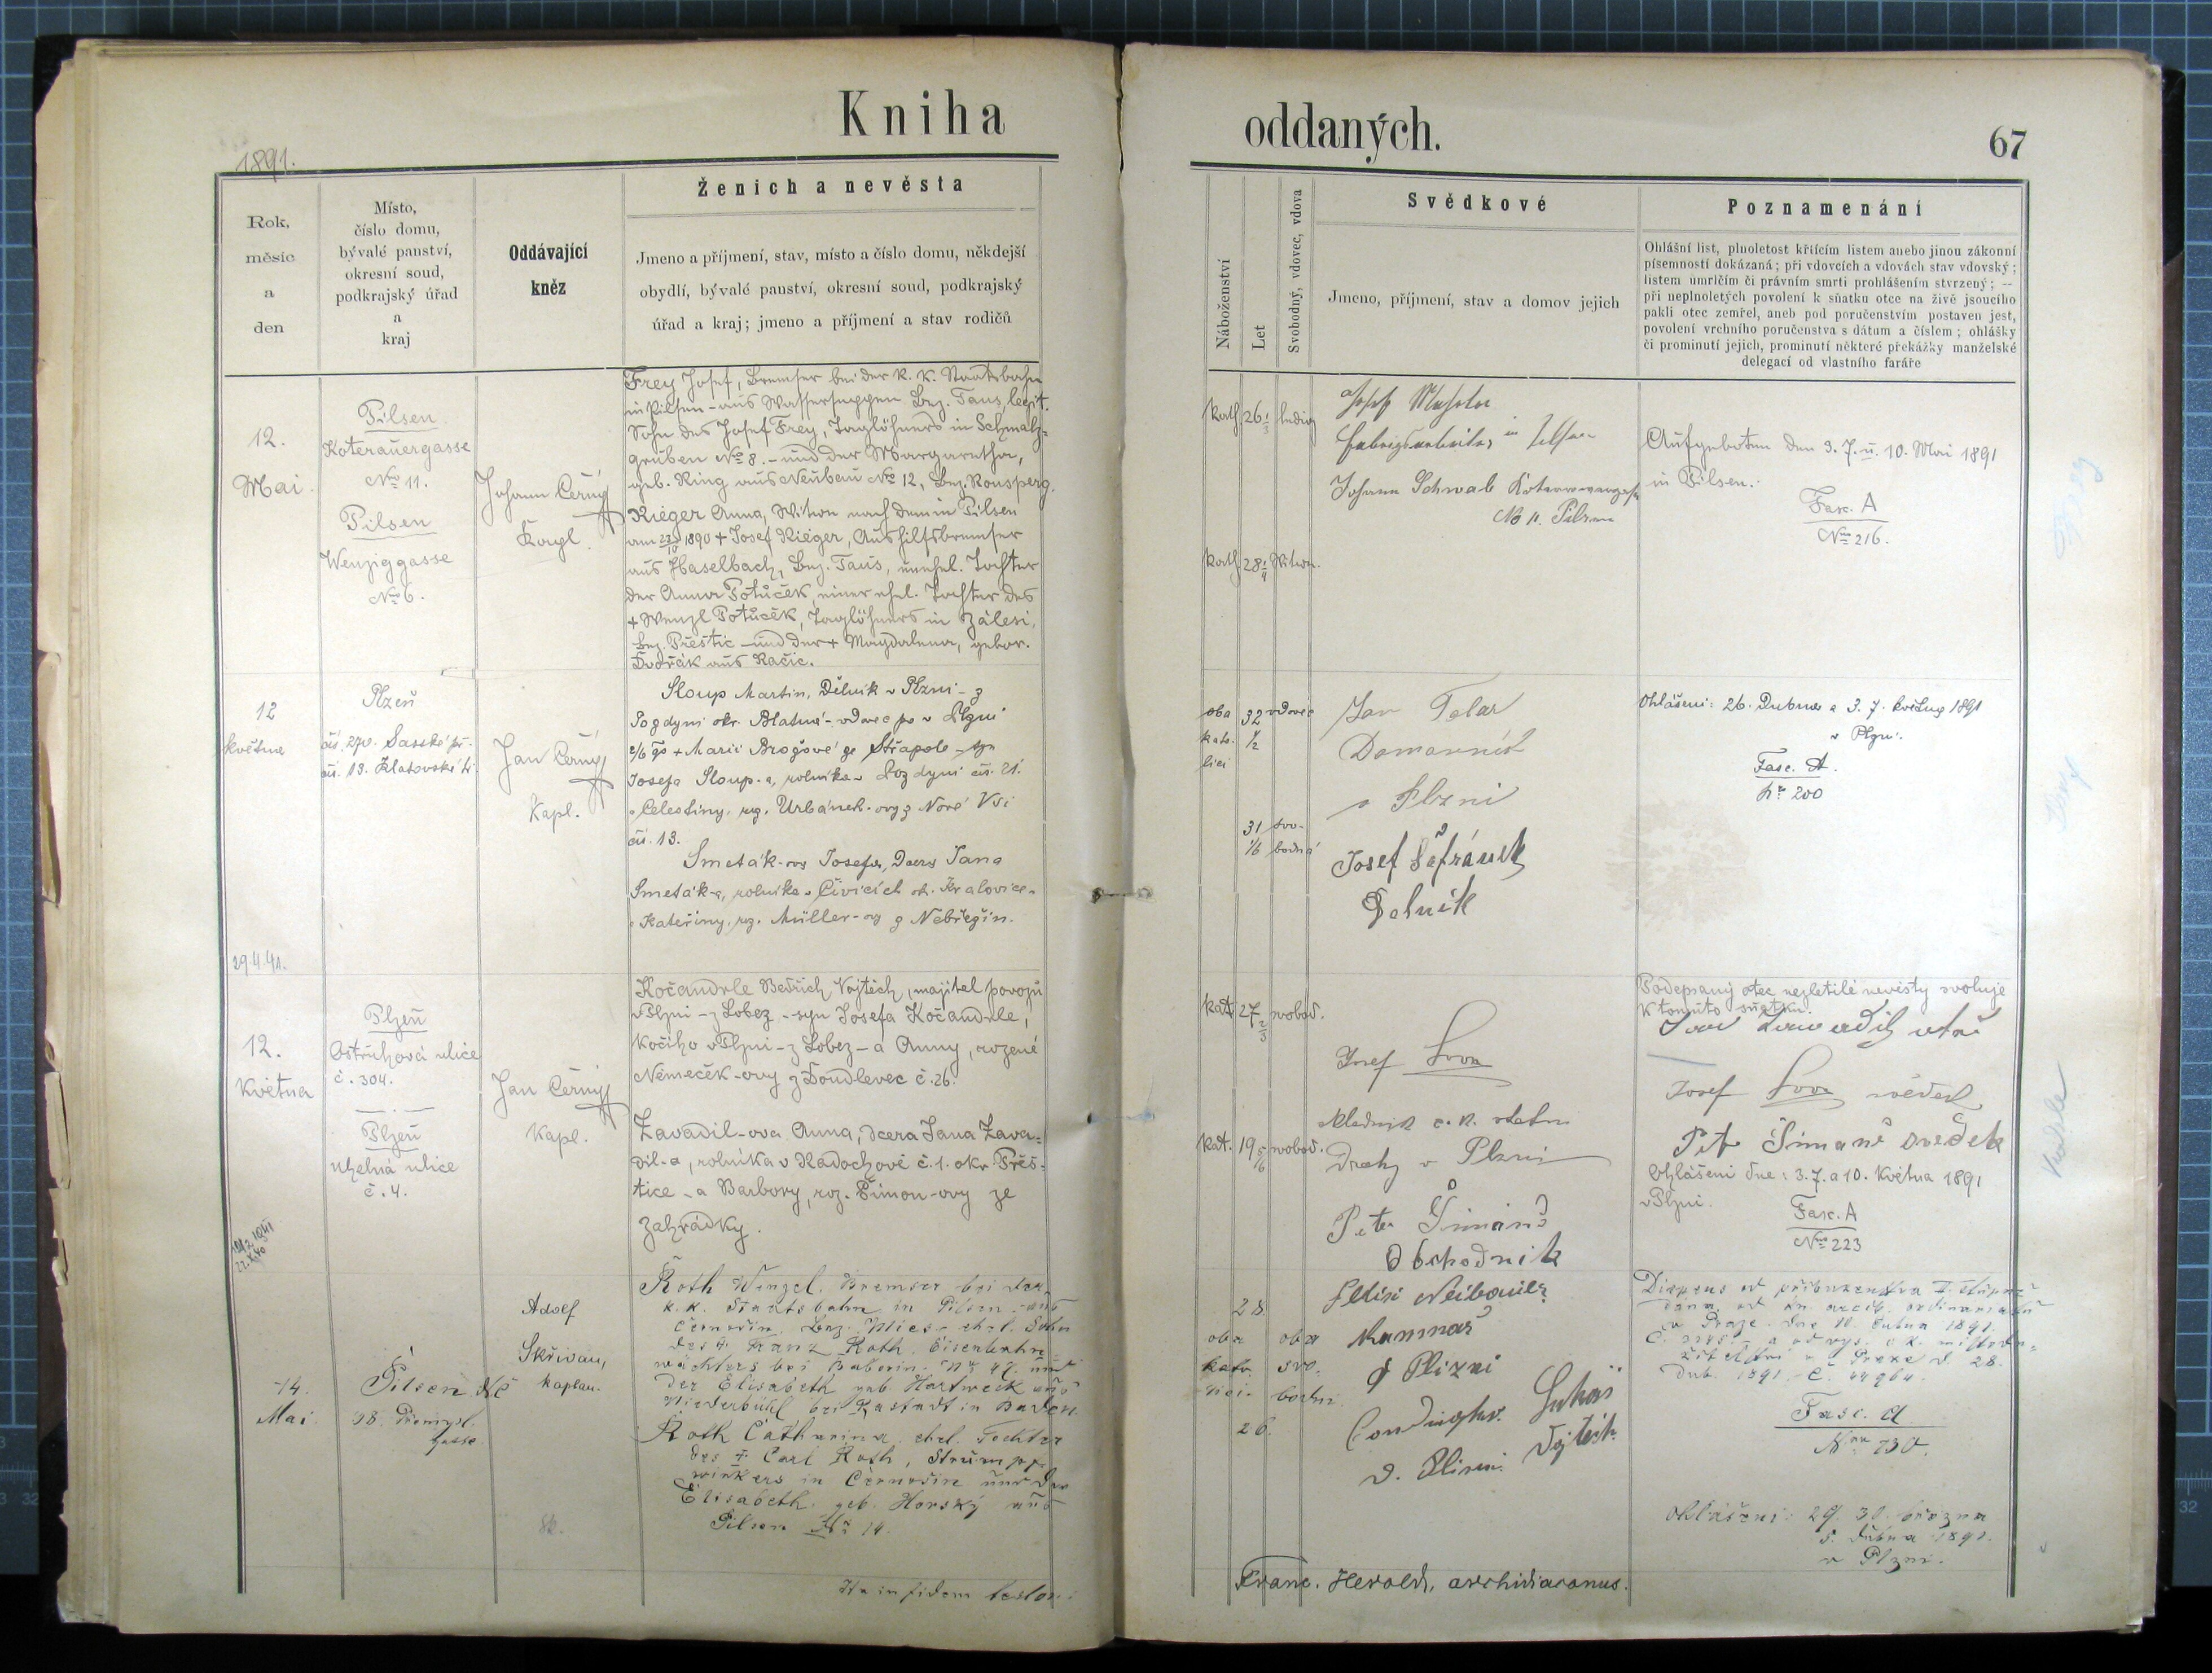 Kniha
oddaných.
67
1891.
Rok,
měsíc
a
den
Místo,
číslo domu,
bývalé panství,
okresní soud,
podkrajský úřad
a
kraj
Oddávající
kněz
Ženich a nevěsta
Jmeno a příjmení, stav, místo a číslo domu, někdejší
obydlí, bývalé panství, okresní soud, podkrajský
úřad a kraj; jmeno a příjmení a stav rodičů
Náboženství
Let
Svobodný, vdovec, vdova
Svědkové
Jmeno, příjmení, stav a domov jejich
Poznamenání
Ohlášní list, plnoletost křtícím listem anebo jinou zákonní
písemností dokázaná; při vdovcích a vdovách stav vdovský;
listem úmrlčím či právním smrti prohlášením stvrzený; —
při neplnoletých povolení k sňatku otce na živě jsoucího
pakli otec zemřel, aneb pod poručenstvím postaven jest,
povolení vrchního poručenstva s dátum a číslem; ohlášky
či prominutí jejich, prominutí některé překážky manželské
delegací od vlastního faráře
12.
Mai.
Pilsen
Koterauergasse
Nro 11.
Pilsen
Wenziggasse
Nro 6.
Johann Černý
Kapl.
Frey Josef, Bremser bei der k. k. Staatsbahn
in Pilsen - aus Wassersuppen Bez. Taus, legit.
Sohn des Josef Frey, Taglöhners in Schmalz-
gruben No 8. - und der Margaretha,
geb. Ring aus Neubau No 12, Bez. Ronsperg.
Rieger Anna, Witwe nach dem in Pilsen
am 23/10 1890 + Josef Rieger, Aushilfsbremser
aus Haselbach, Bez. Taus, unehel. Tochter
der Anna Potůček, einer ehel. Tochter des
+ Wenzl Potůček, Taglöhners in Zálesí,
Bez. Přeštic - und der + Magdalena, gebor.
Dvořák aus Račic.
kath.
26 1/3
ledig
kath.
28 1/4
Witwe.
Josef
Fabriksarbeiter in Pilsen
Johann Schwab Koterauergasse
No 11. Pilsen
Aufgeboten den 3. 7. u. 10. Mai 1891
in Pilsen.
Fasc. A
Nro 216.
12
května
Plzeň
čís. 270. Saské př.
čís. 13. Klatovské tř.
Jan Černý
Kapl.
Sloup Martin, Dělník v Plzni - z
Pozdyni okr. Blatná - vdovec po v Plzni
+ Marii Brožové ze Střapole - syn
Josefa Sloup-a, rolníka v Pozdyni čís. 21.
a Celestiny, roz. Urbánek-ovy z Nové Vsi
čís. 13.
Smeták-ova Josefa, Dcera Jana
Smeták-a, rolníka v Čivicích ok. Kralovice
a Kateřiny, roz. Müller-ovy z Nebřežin.
29.4.41.
oba
kato-
líci
32
1/2
vdovec
31
1/6
svo-
bodná
Jan
Domovník
v Plzni
Josef Šafránek
Dělník
Ohlášeni: 26. Dubna a 3. 7. května 1891
v Plzni.
Fasc. A.
No 200
12.
Května
Plzeň
Ostruhová ulice
č. 304.
Plzeň
uhelná ulice
č. 4.
Jan Černý
Kapl.
Kočandrle Bedřich Vojtěch, majitel povozů
v Plzni - z Lobez - syn Josefa Kočandrle,
kočího v Plzni - z Lobez - a Anny, rozené
Němeček-ovy z Doudlevec č. 26.
Zavadil-ova Anna, dcera Jana Zava-
dil-a, rolníka v Radochově č. 1. okr. Přeš-
tice - a Barbory, roz. Šimon-ovy ze
Zahrádky.
kat.
27 2/3
svobod.
kat.
19 5/6
svobod.
Josef
c. k. státní
Dráhy v Plzni
Petr Šimáně
Obchodník
Podepsaný otec nezletilé nevěsty svoluje
k tomuto sňatku.
Jan Zavadil otec
Josef svědek
Petr Šimaně svědek
Ohlášeni dne: 3. 7. a 10. května 1891
v Plzni.
Fasc. A
Nro 223
14.
Mai
Pilsen No
98. Přemysl.
gasse
Adolf
Skřivan,
kaplan.
Roth Wenzel, Bremser bei der
k. k. Staatsbahn in Pilsen - aus
Černošín, Bez. Mies - ehel. Sohn
des + Franz Roth, Eisenbahn-
wächters bei No 47. und
der Elisabeth geb. Hartweck aus
Niederbühl bei Rastadt in Baden.
Roth Catharina, ehel. Tochter
des + Carl Roth, Strumpf-
wirkers in Černošín und der
Elisabeth geb. Horský aus
Pilsen No 14.
28.
oba
kato-
líci.
oba
svo-
bodni.
26.
v Plzni
Lukáš
Vojtěch
v Plzni
Dispens od příbuzenství II. stupně
v Praze dne 10. dubna 1891.
28.
Dub. 1891. Č. 44964.
Fasc. A
Nro 230.
Ohlášeni: 29. 30. března
5. dubna 1891.
v Plzni.
Ita in fidem testor:
Franc. Herold, archidiaconus.